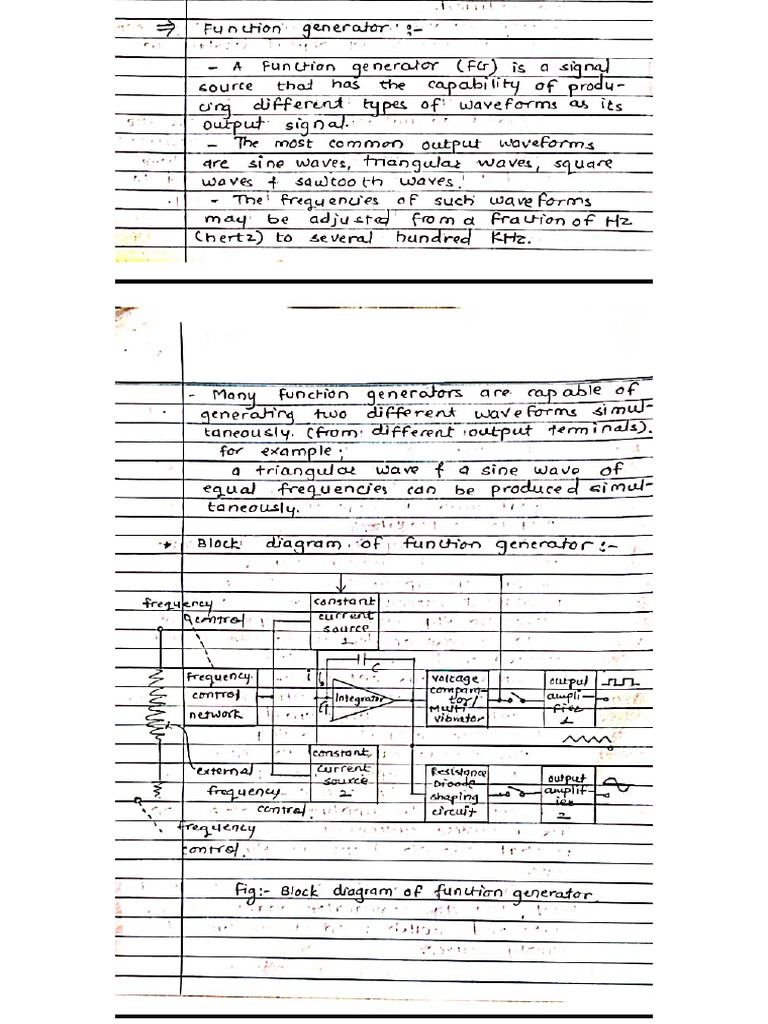 ⇒ Function generator :-
- A Function generator (FG) is a signal
source that has the capability of produ-
cing different types of waveforms as its
output signal.
- The most common output waveforms
are sine waves, triangular waves, square
waves & sawtooth waves.
- The frequencies of such waveforms
may be adjusted from a fraction of Hz
(hertz) to several hundred KHz.
- Many function generators are capable of
generating two different waveforms simul-
taneously. (from different output terminals).
for example;
a triangular wave & a sine wave of
equal frequencies can be produced simul-
taneously.
* Block diagram of function generator :-
frequency
control
constant
current
source
1
Frequency
control
network
i
C
Integrator
voltage
compara-
tor/
Multi
vibrator
output
ampli-
fier
1
external
frequency
control
constant
current
source
2
Resistance
Diode
shaping
circuit
output
amplif-
ier
2
frequency
control.
Fig:- Block diagram of function generator.